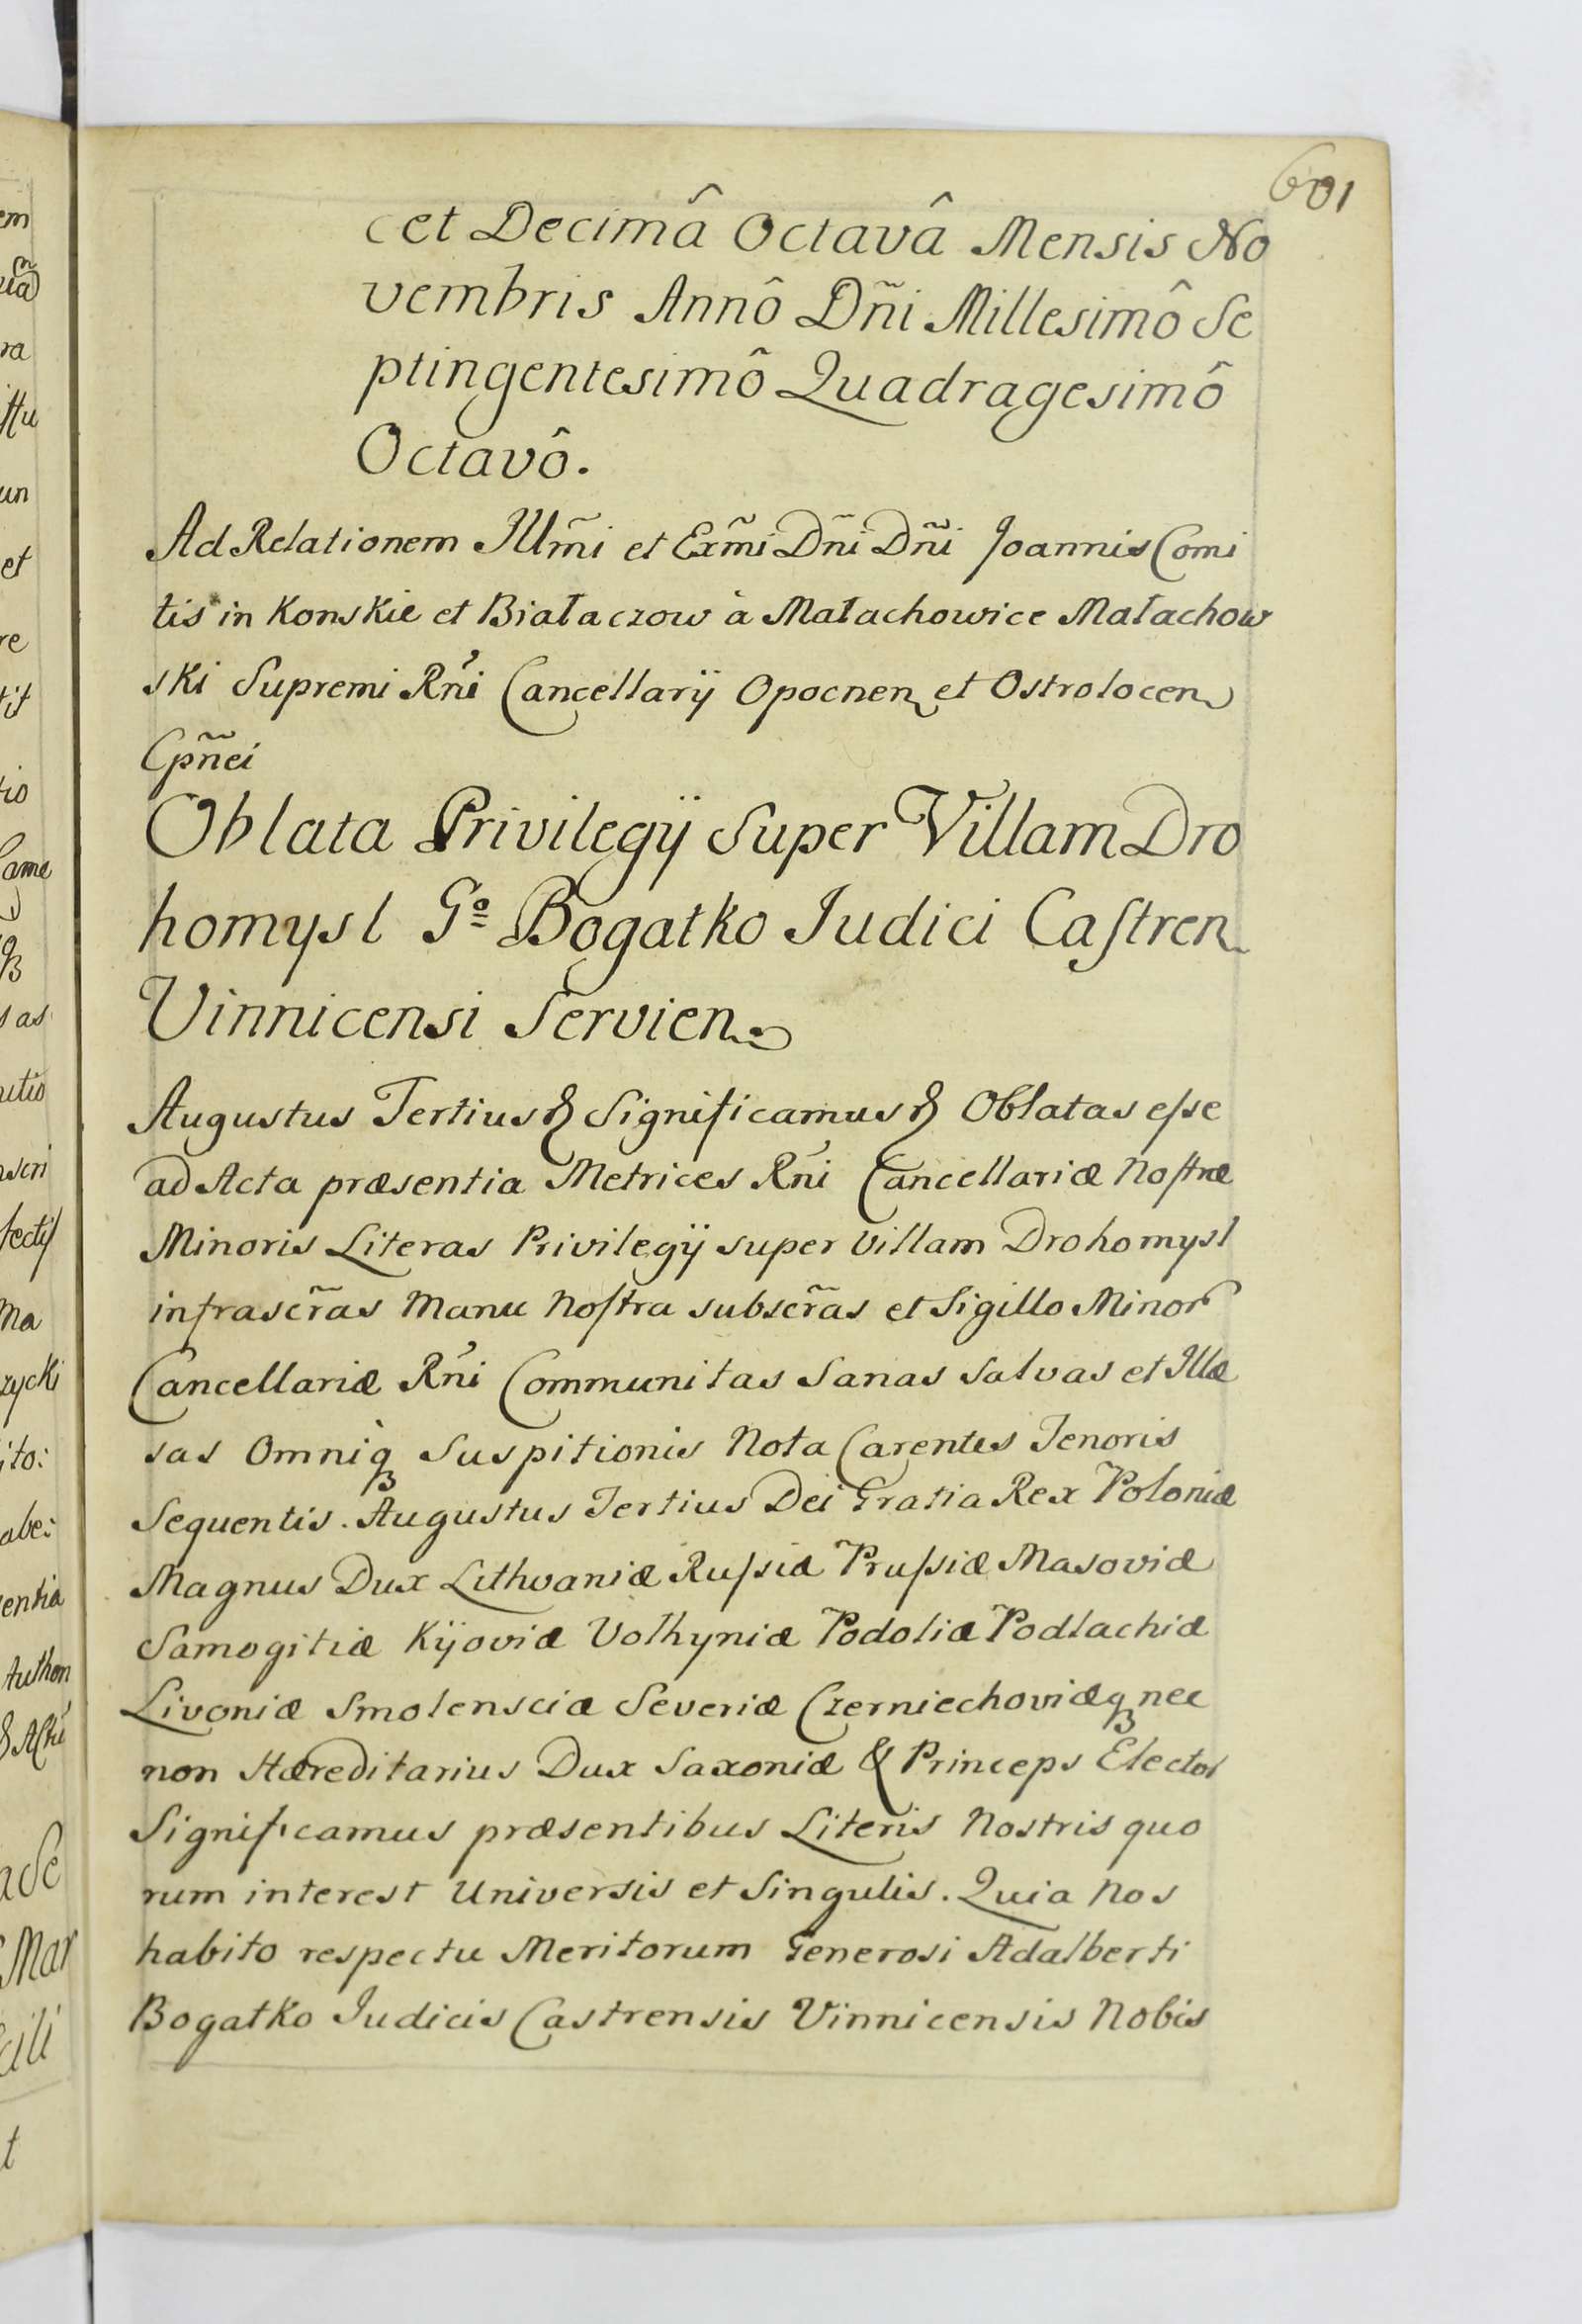 601
cet Decimâ Octavâ Mensis No
vembris Annô Dñi Millesimô Se
ptingentesimô Quadragesimô
Octavô.
Ad Relationem Illm̃i et Exm̃i Dñi Dñi Joannis Comi
tis in Konskie et Białaczow à Małachowice Małachow
ski Supremi Rñi Cancellarij Opocnen et Ostrolocen
Cpñei
Oblata Privilegij Super Villam Dro
homysl Gº Bogatko Judici Castren
Vinnicensi Servien.
Augustus Tertius & Significamus & Oblatas esse
ad Acta præsentia Metrices Rñi Cancellariæ Nostræ
Minoris Literas Privilegij super Villam Drohomysl
infrascr̃as Manu Nostra subscr̃as et Sigillo Minor
Cancellariæ Rñi Communitas Sanas Salvas et Illæ
sas Omniq Suspitionis Nota Carentes Tenoris
Sequentis. Augustus Tertius Dei Gratia Rex Poloniæ
Magnus Dux Lithvaniæ Russiæ Prussiæ Masoviæ
Samogitiæ Kijoviæ Volhyniæ Podoliæ Podlachiæ
Livoniæ Smolensciæ Severiæ Czerniechoviæq nec
non Hæreditarius Dux Saxoniæ & Princeps Elector
Significamus præsentibus Literis Nostris quo
rum interest Universis et Singulis. Quia Nos
habito respectu Meritorum Generosi Adalberti
Bogatko Judicis Castrensis Vinnicensis Nobis